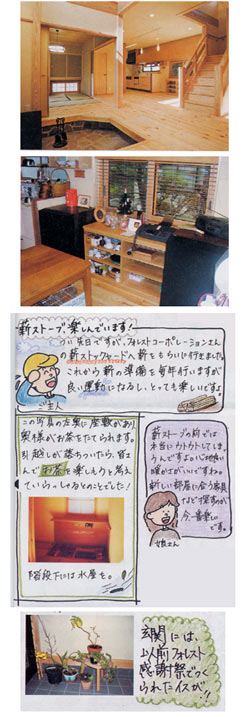 薪ストーブ楽しんでいます!
つい先日ですが、フォレストコーポレーションさん
の薪ストックヤードへ薪をもらいに行きました。
これから薪の準備を毎年行いますが
良い運動になるし、とっても楽しいですよ
ご主人
この写真の左奥に座敷があり
奥様がお茶をたてられます。
引越しが落ちついたら、皆さ
んでお茶を楽しもうと考え
ていらっしゃるとのことでした!
階段下には水屋を。
薪ストーブの前では
本当にウトウトしてしま
うんですよ。心地良い
暖かさがいいですね。
新しい部屋に合う家具
などを探すのが
今一番楽しい
です。
奥さん
玄関には、
以前フォレスト
感謝祭でつく
られたイスが!